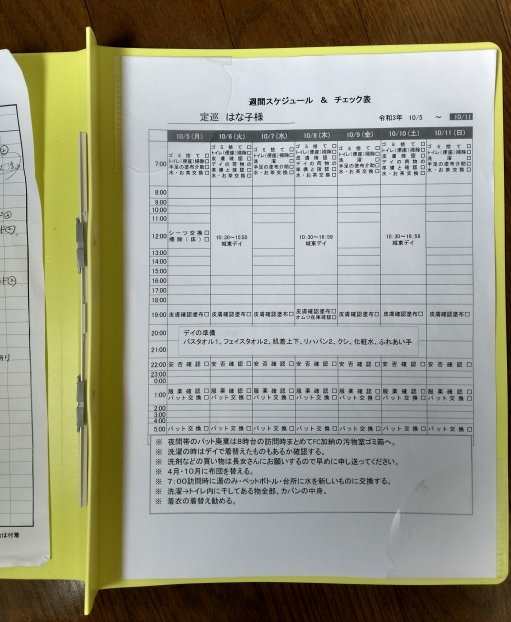 週間スケジュール & チェック表
定巡 はな子様 令和3年 10/5 ～ 10/11
10/5(月) 10/6(火) 10/7(水) 10/8(木) 10/9(金) 10/10(土) 10/11(日)
7:00
ゴミ捨て□
トイレ(便座)掃除□
手足の塗布介助□
水・お茶交換□
ゴミ捨て□
トイレ(便座)掃除□
皮膚確認□
デイの荷物
準備と確認□
水・お茶交換□
8:00
9:00
10:00
11:00
12:00 シーツ交換□
掃除(床)□
10:30～15:50
城東デイ
10:30～16:59
城東デイ
10:30～16:59
城東デイ
13:00
14:00
15:00
16:00
17:00
18:00
19:00 皮膚確認塗布□ 皮膚確認塗布□ 皮膚確認塗布□ 皮膚確認塗布□ 皮膚確認塗布□ 皮膚確認塗布□ 皮膚確認塗布□
オムツ在庫確認□
20:00 デイの準備
バスタオル1、フェイスタオル2、肌着上下、リハパン2、クシ、化粧水、ふれあい手
21:00
22:00 安否確認□ 安否確認□ 安否確認□ 安否確認□ 安否確認□ 安否確認□ 安否確認□
23:00
0:00
1:00 服薬確認□ 服薬確認□ 服薬確認□ 服薬確認□ 服薬確認□ 服薬確認□ 服薬確認□
パット交換□ パット交換□ パット交換□ パット交換□ パット交換□ パット交換□ パット交換□
2:00
3:00
4:00
5:00 パット交換□ パット交換□ パット交換□ パット交換□ パット交換□ パット交換□ パット交換□
※ 夜間帯のパット廃棄は8時台の訪問時まとめてFC加納の汚物室ゴミ箱へ。
※ 洗濯の時はデイで着替えたものもあるか確認する。
※ 洗剤などの買い物は長女さんにお願いするので早めに申し送ってください。
※ 4月・10月に布団を替える。
※ 7:00訪問時に湯のみ・ペットボトル・台所に水を新しいものに交換する。
※ 洗濯→トイレ内に干してある物全部、カバンの中身。
※ 着衣の着替え勧める。
は付着